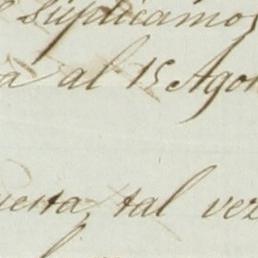 suplicamos
a al 15 Agos
uesta, tal vez